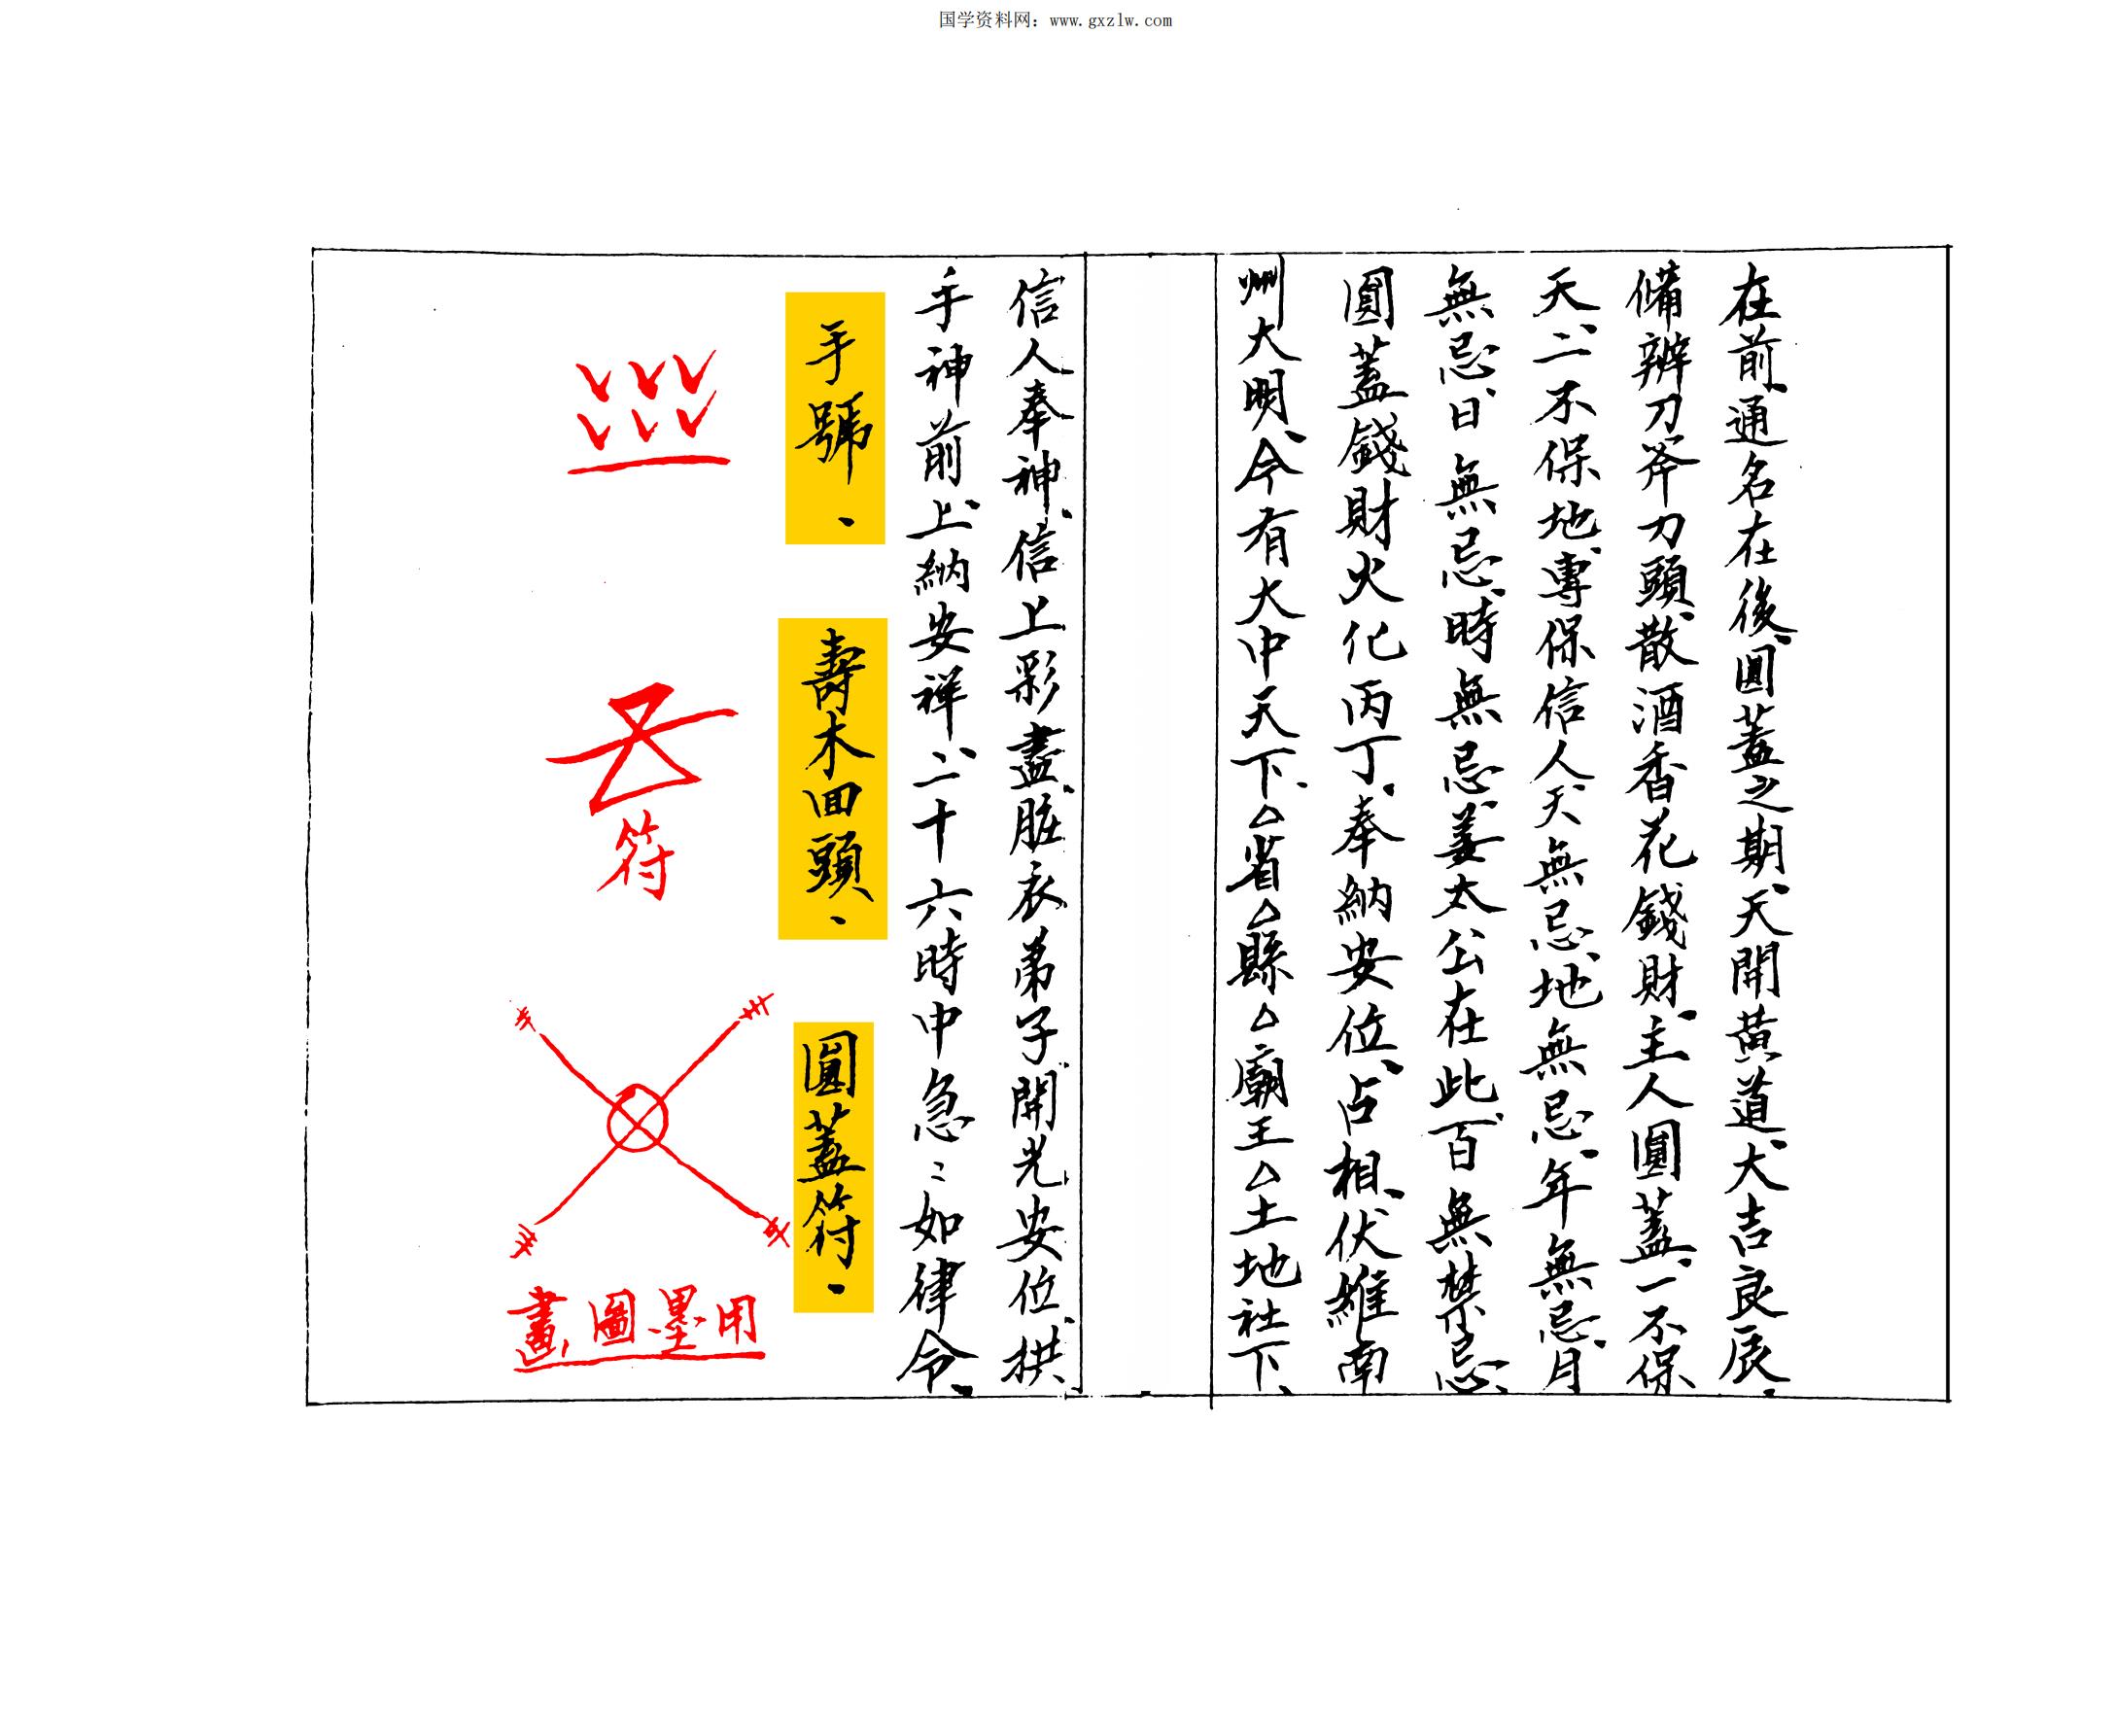 国学资料网：www.gxzlw.com
在前、通名在後、圓蓋之期、天開黄道、大吉良辰、
備辦刀斧刀頭、散酒香花錢財、主人圓蓋、一不保
天、二不保地、專保信人、天無忌、地無忌、年無忌、月
無忌、日無忌、時無忌、姜太公在此、百無禁忌、
圓蓋錢財火化丙丁、奉納安位、占相、伏維南
州大明、今有大中天下、△省△縣△廟王△土地社下、
信人奉神、信上彩畫、脏衣弟子、開光安位、拱
手神前、上納安祥、二十六時中急〻如律令、
手號、
壽木回頭、
圓蓋符、
符
用墨圖畫